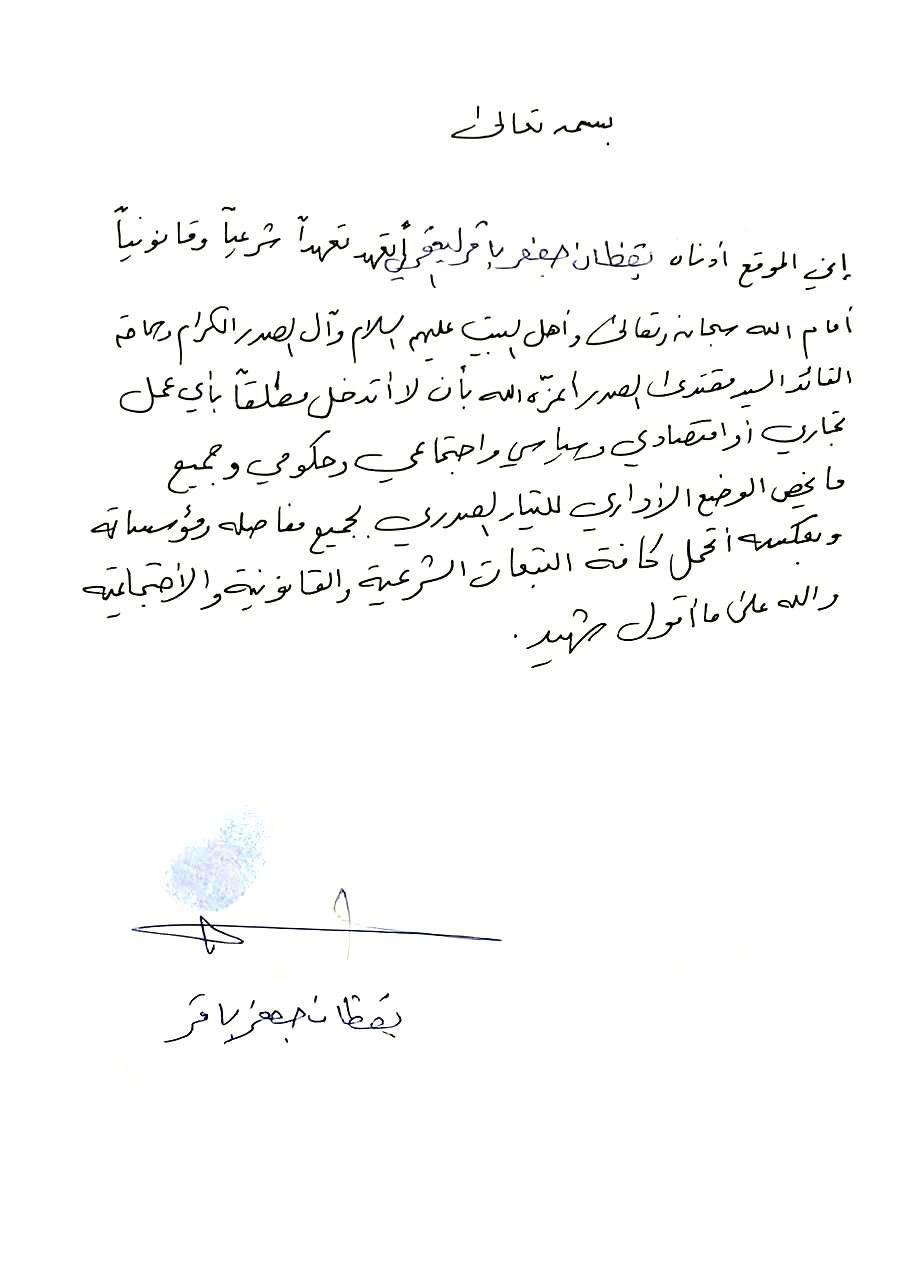 بسمه تعالى
إني الموقع أدناه يقظان جعفر باقر أتعهد تعهداً شرعياً وقانونياً
أمام الله سبحانه وتعالى وأهل البيت عليهم السلام وآل الصدر الكرام وسماحة
القائد السيد مقتدى الصدر أعزّه الله بأن لا أتدخل مطلقاً بأي عمل
تجاري أو اقتصادي وسياسي واجتماعي وحكومي وجميع
ما يخص الوضع الأداري للتيار الصدري بجميع مفاصله ومؤسساته
وبعكسه أتحمل كافة التبعات الشرعية والقانونية والأجتماعية
والله على ما أقول شهيد .
يقظان جعفر باقر